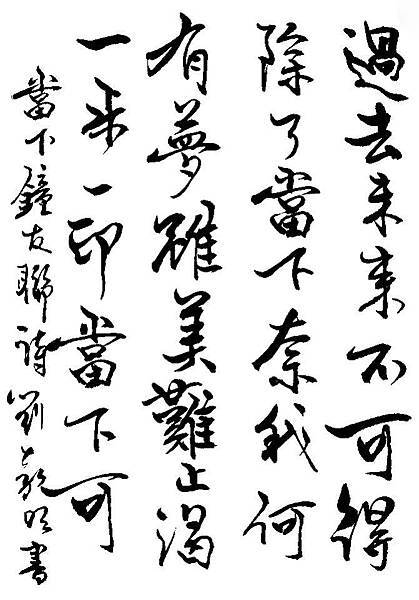 過去未來不可得
除了當下奈我何
有夢雖美難止渴
一步一印當下可
當下鐘友聯詩劉書